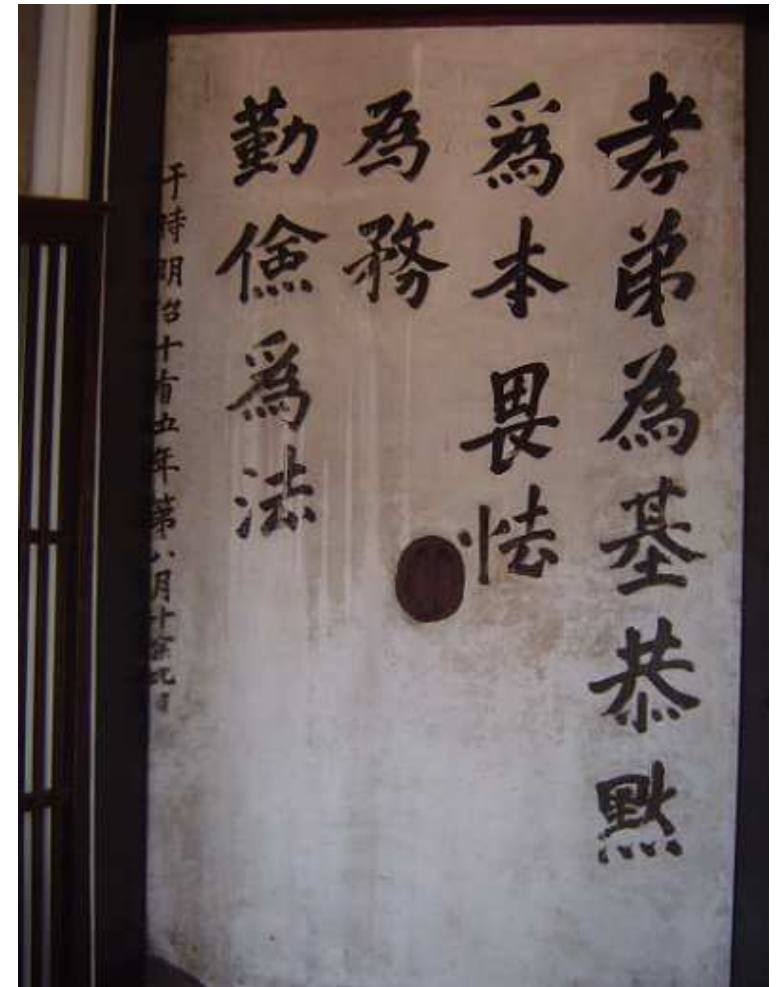 孝弟為基恭黙
爲本畏怯
為務
勤儉爲法
于時明治十有五年第八月日